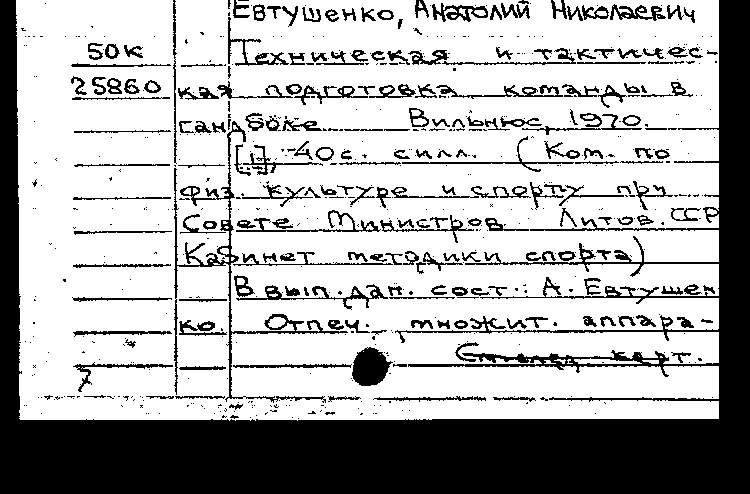 Евтушенко, Анатолий Николаевич
50к Техническая и тактичес-
25860 кая подготовка команды в
гандболе Вильнюс, 1970.
[1], 40с. с илл. (Ком. по
физ. культуре и спорту при
Совете Министров Литов. ССР
Кабинет методики спорта)
В вып. дан. сост.: А. Евтушен
ко. Отпеч. множит. аппара-
карт.
7